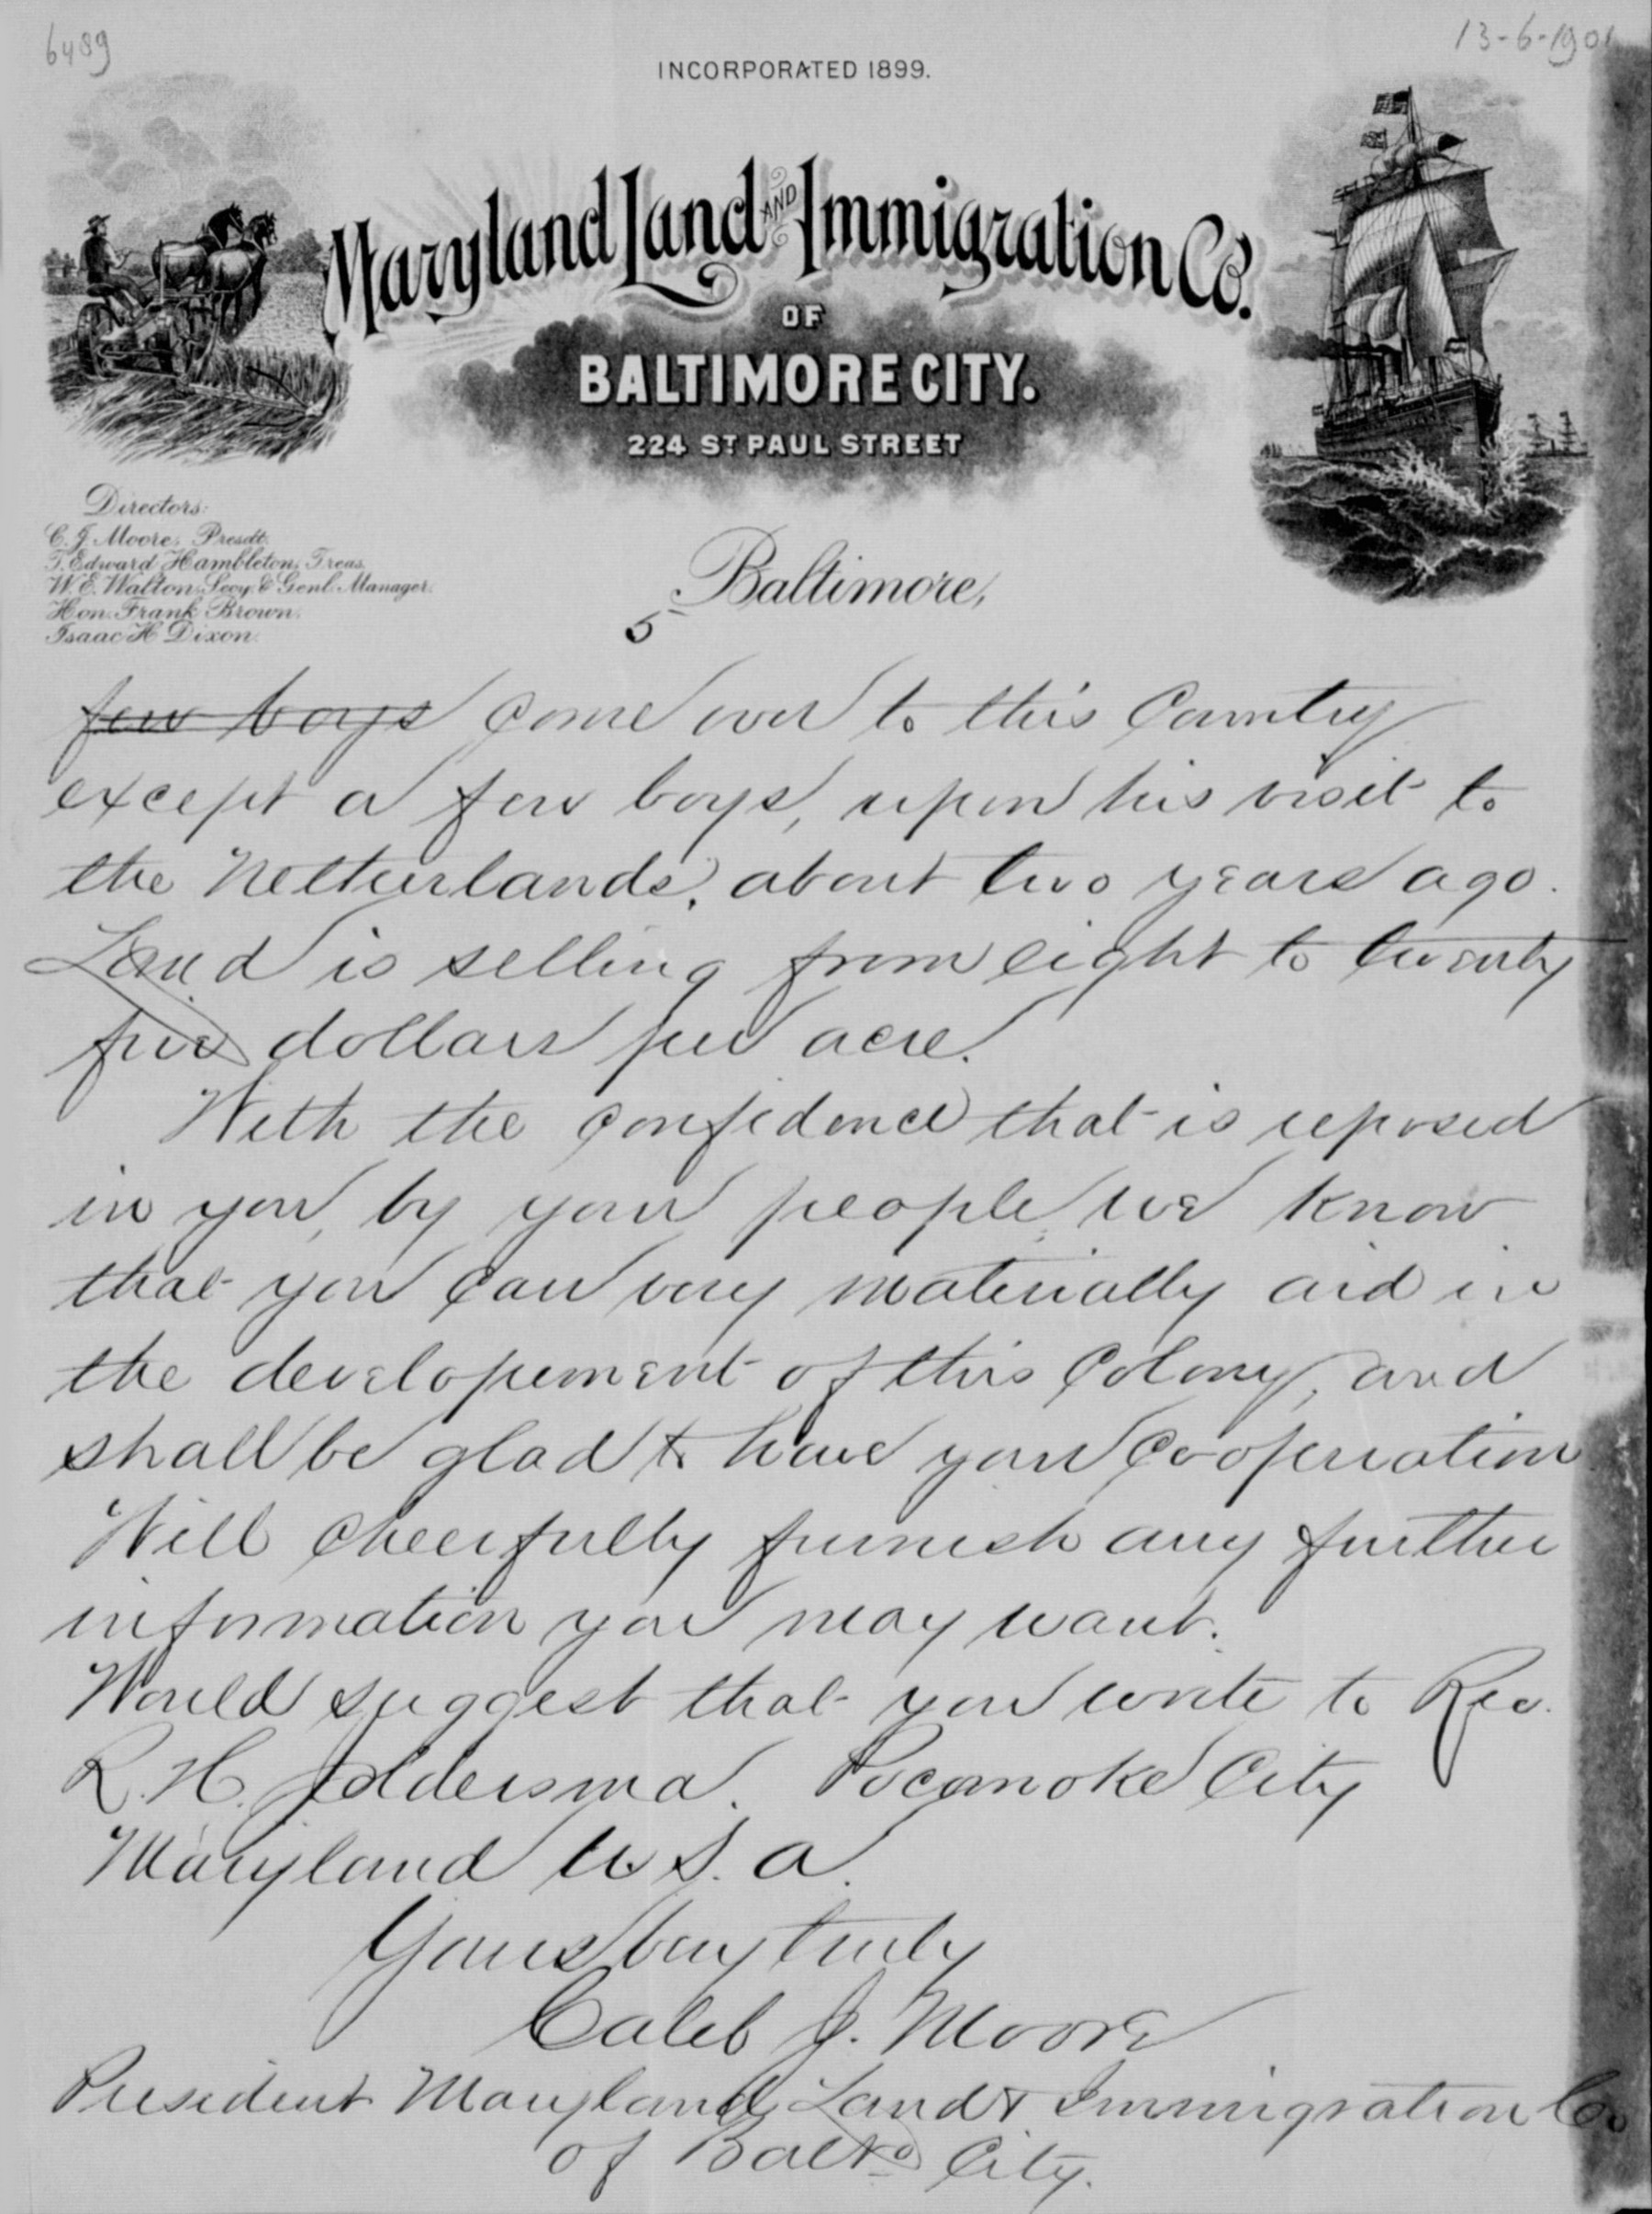 6489
13-6-1901
INCORPORATED 1899.
Maryland Land AND Immigration Co.
OF
BALTIMORE CITY.
224 ST PAUL STREET
Directors:
C. J. Moore, Presdt.
T. Edward Hambleton, Treas.
W. E. Walton, Secy. & Genl. Manager.
Hon. Frank Brown.
Isaac H. Dixon.
Baltimore,
5
few boys come over to this Country
except a few boys, upon his visit to
the Netherlands, about two years ago.
Land is selling from eight to twenty
five dollars per acre.
With the confidence that is reposed
in you, by your people, we know
that you can very materially aid in
the developement of this Colony, and
shall be glad to have your Co-operation
Will cheerfully furnish any further
information you may want.
Would suggest that you write to Rev.
R. H. Joldersma. Pocomoke City
Maryland U.S.A.
Yours very truly
Caleb J. Moore
President Maryland Land & Immigration Co
of Balto City.